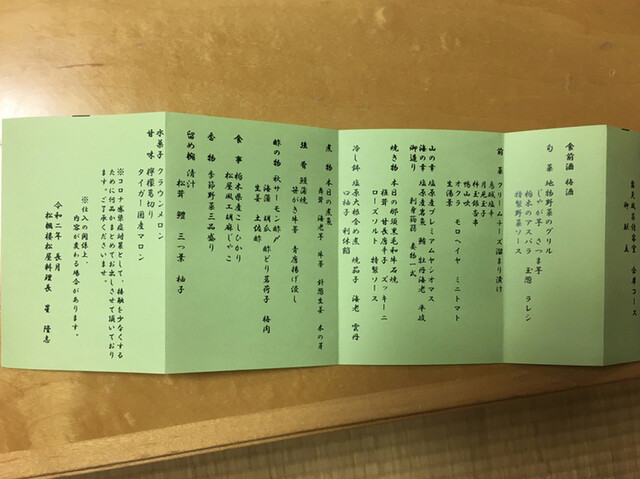 御献立
食前酒 梅酒
旬菜 地物野菜のグリル
じゃが芋 さつま芋
栃木のアスパラ 玉葱 ラレシ
特製野菜ソース
前菜 クリームチーズ溜まり漬け
鳥松風
月見玉子
鴨山吹
オクラ モロヘイヤ ミニトマト
生湯葉
山の幸 塩原産プレミアムヤシオマス
海の幸 塩原岩魚 鮪 牡丹海老
御造り 刺身蒟蒻 妻物一式
焼き物 本日の那須黒毛和牛石焼
椎茸 甘長唐辛子 ズッキーニ
ローズソルト 特製ソース
冷し鉢 塩原大根含め煮 焼茄子 海老 雲丹
口柚子 利休餡
煮物 本日の煮魚
海老芋 牛蒡 針葱生姜 木の芽
強肴 鰻蒲焼
笹がき牛蒡 青唐揚げ浸し
酢の物 秋サーモン酢〆
海藻 胡瓜 酢どり茗荷子 梅肉
生姜 土佐酢
食事 栃木県産こしひかり
松屋風工胡麻じゃこ
香物 季節野菜三品盛り
留め椀 清汁
松茸 鱧 三つ葉 柚子
水菓子 クラウンメロン
甘味 檸檬葛切り
タイガー国産マロン
※コロナ感染症対策として、接触を少なくする
ために何品かまとめてお出しさせて頂いており
ます。ご了承くださいませ
※仕入の関係上、
内容が変わる場合があります。
令和二年 長月
松楓楼松屋料理長 星 隆志